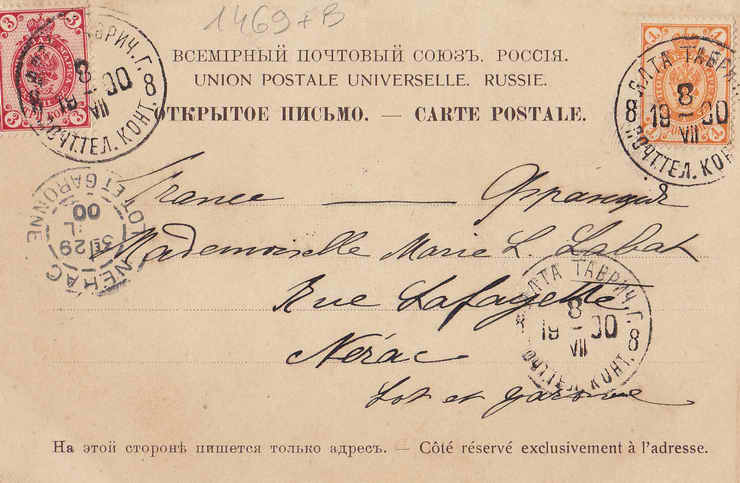 1469+B
ВСЕМІРНЫЙ ПОЧТОВЫЙ СОЮЗЪ. РОССІЯ.
UNION POSTALE UNIVERSELLE. RUSSIE.
ОТКРЫТОЕ ПИСЬМО. — CARTE POSTALE.
3 3 3
1 1 1
ТАВРИЧ. Г.
8
19 – 00
VII
8
ПОЧТ ТЕЛ. КОНТ.
ЯЛТА ТАВРИЧ
8
8 19 – 00
VII
ПОЧТ ТЕЛ. КОНТ
France — Франція
Mademoiselle Marie L. Labat
Rue Lafayette
Nérac
Lot et Garonne
NÉRAC
LOT ET GARONNE
29
00
ЯЛТА ТАВРИЧ. Г.
8
8 19 – 00 8
VII
ПОЧТ ТЕЛ. КОНТ.
На этой сторонѣ пишется только адресъ. — Côté réservé exclusivement à l'adresse.